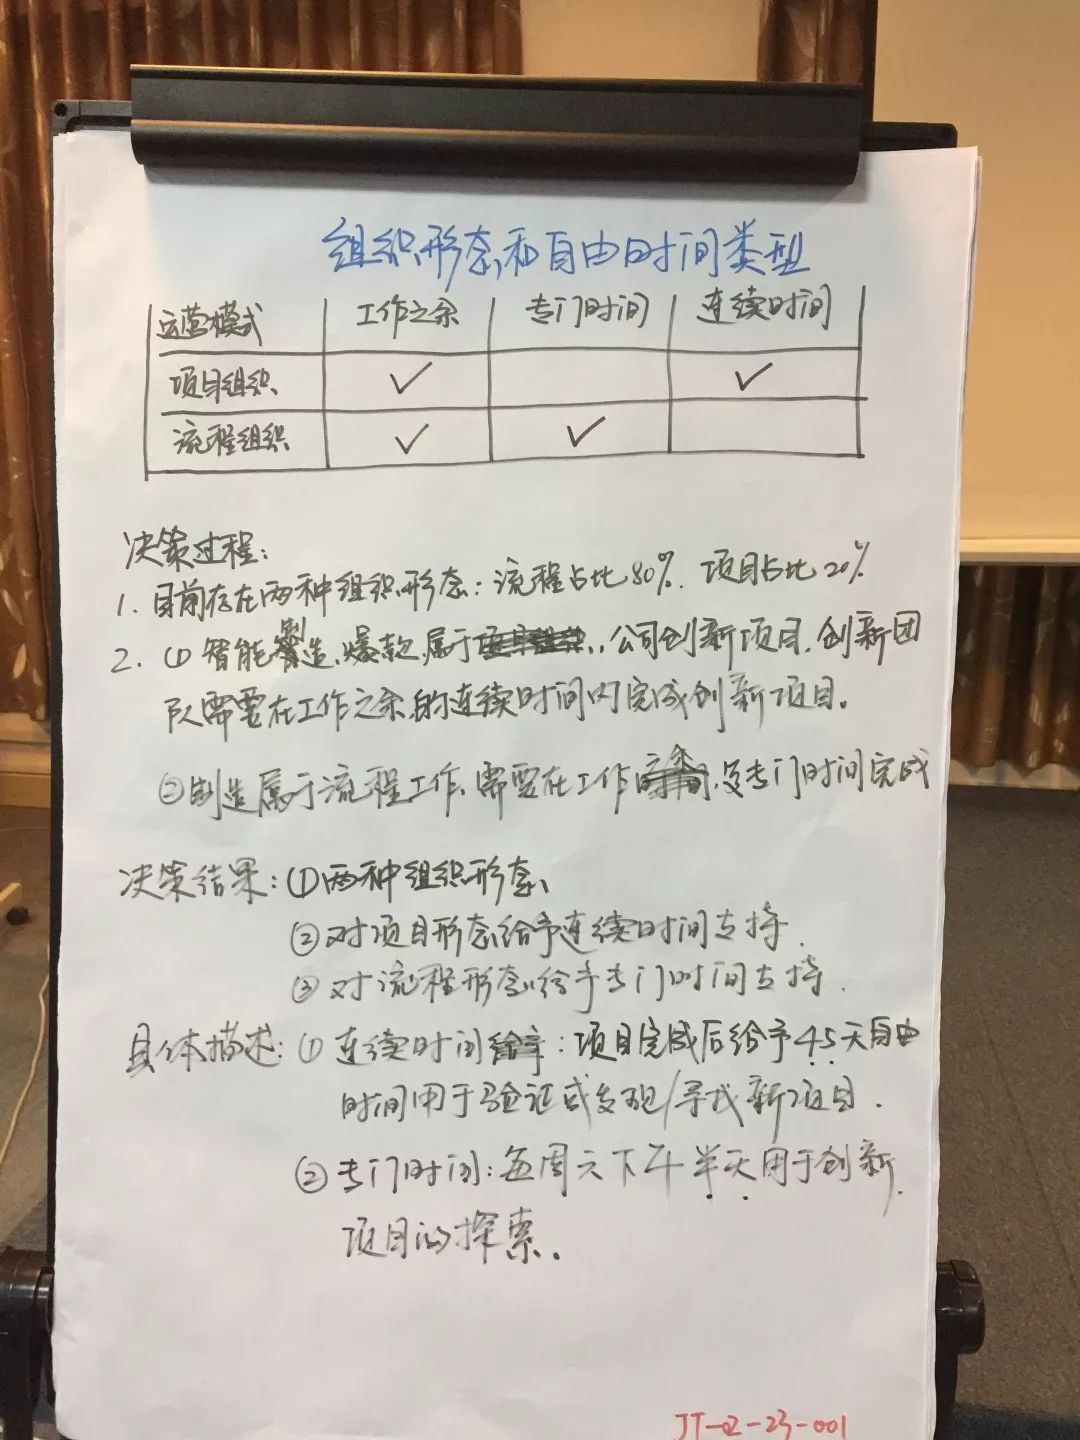 组织形态和自由时间类型
运营模式 工作之余 专门时间 连续时间
项目组织 ✓ ✓
流程组织 ✓ ✓
决策过程:
1. 目前存在两种组织形态: 流程占比80%. 项目占比20%
2. ① 智能制造、爆款、属于公司创新项目, 创新团
队需要在工作之余的连续时间内完成创新项目。
②制造属于流程工作、需要在工作余、及专门时间完成
决策结果: ①两种组织形态
②对项目形态给予连续时间支持.
③对流程形态给予专门时间支持.
具体描述: ① 连续时间: 项目完成后给予45天自由
时间用于验证或发现/寻找新项目.
② 专门时间: 每周六下午半天用于创新
项目的探索.
JT-02-23-001